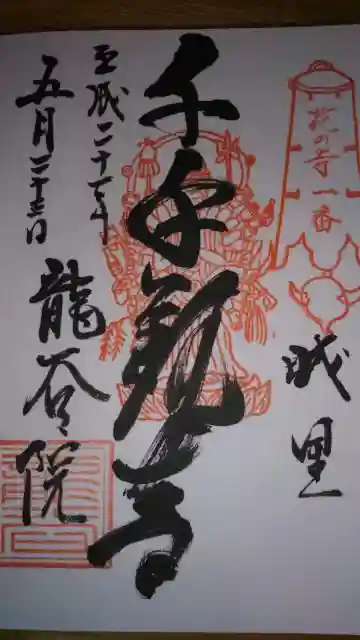 花の寺一番
城里
千手観音
平成二十年
五月二十三日
龍谷院